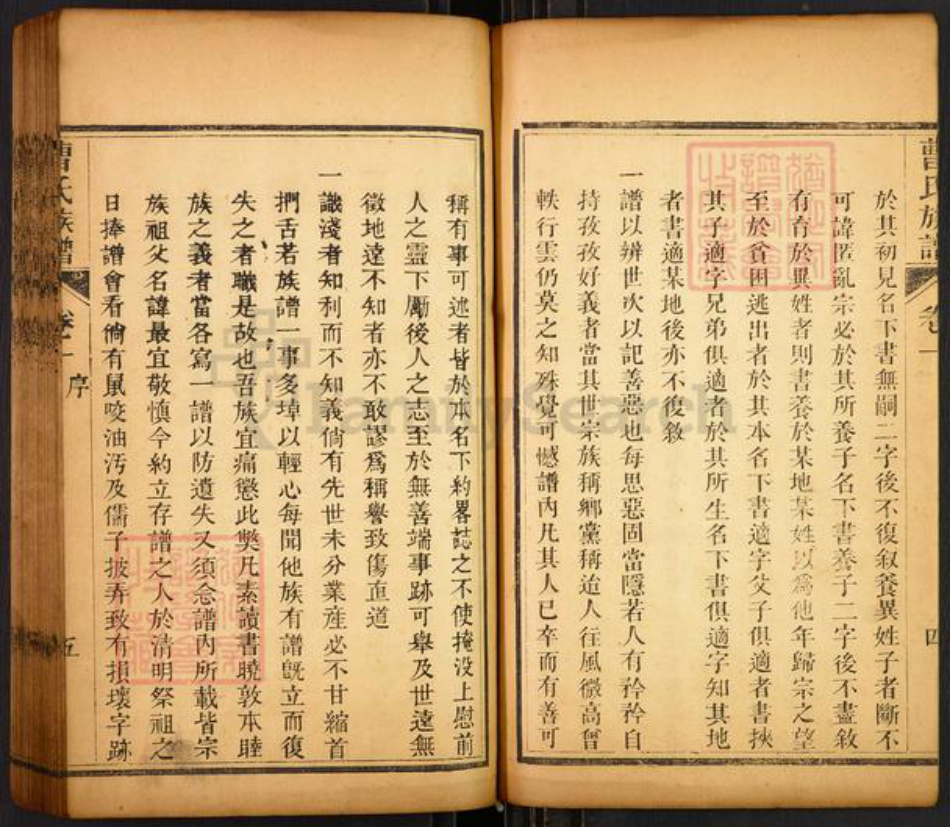 曹氏族譜
卷一
四
於其初見名下書無嗣二字後不復敘養異姓子者斷不
可諱匿亂宗必於其所養子名下書養子二字後不盡敘
有育於異姓者則書養於某地某姓以爲他年歸宗之望
至於貧困逃出者於其本名下書適字父子俱適者書挾
其子適字兄弟俱適者於其所生名下書俱適字知其地
者書適某地後亦不復敘
一譜以辨世次以記善惡也每思惡固當隱若人有矜矜自
持孜孜好義者當其世宗族稱鄉黨稱迨人往風微高曾
軼行雲仍莫之知殊覺可憾譜內凡其人已卒而有善可
稱有事可述者皆於本名下約畧誌之不使掩没上慰前
人之靈下勵後人之志至於無善端事跡可舉及世遠無
徵地遠不知者亦不敢謬爲稱譽致傷直道
一識淺者知利而不知義倘有先世未分業產必不甘縮首
捫舌若族譜一事多埠以輕心每聞他族有譜旣立而復
失之者職是故也吾族宜痛懲此獘凡素讀書曉敦本睦
族之義者當各寫一譜以防遺失又須念譜內所載皆宗
族祖父名諱最宜敬慎今約立存譜之人於清明祭祖之
日捧譜會看倘有鼠咬油汚及儒子披弄致有損壞字跡
曹氏族譜
卷一
序
五
FamilySearch